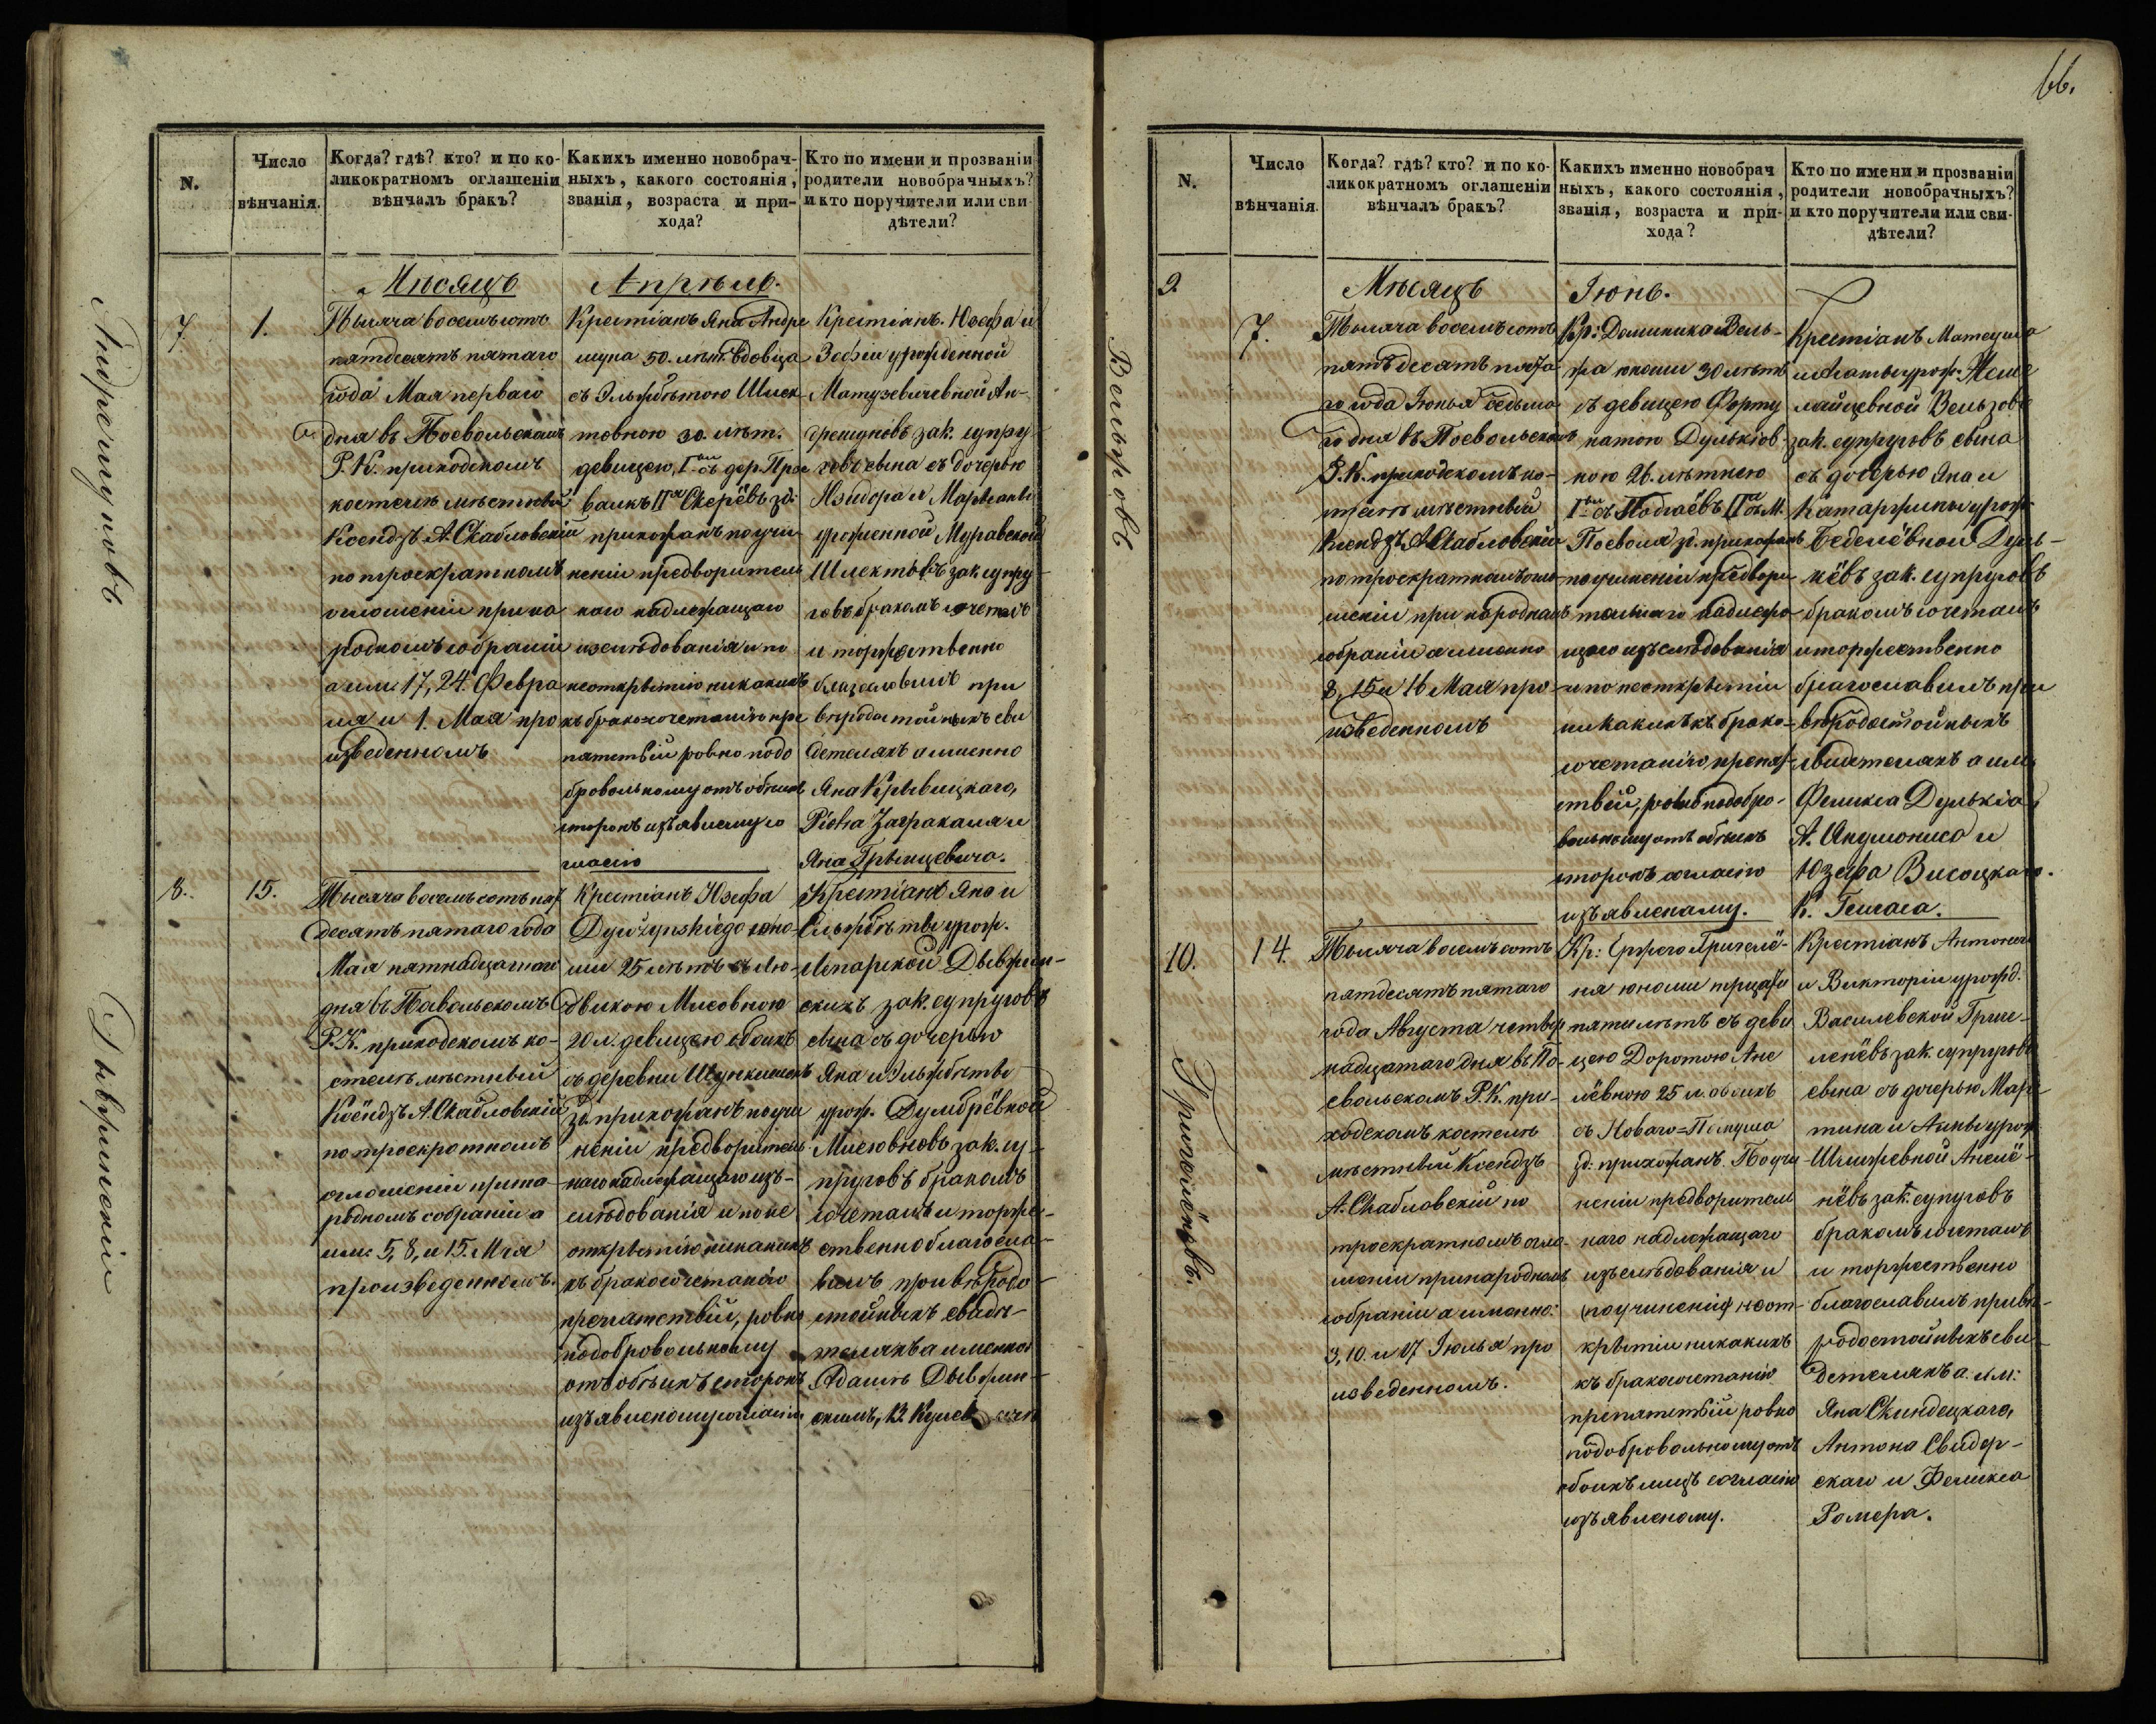 66.
N.
Число
вѣнчанія.
Когда? гдѣ? кто? и по ко-
ликократномъ оглашеніи
вѣнчалъ бракъ?
Какихъ именно новобрач-
ныхъ, какого состоянія,
званія, возраста и при-
хода?
Кто по имени и прозванію
родители новобрачныхъ?
и кто поручители или сви-
дѣтели?
Мѣсяцъ Апрѣль.
Андрешуновъ
7.
1.
Тысяча восемьсотъ
пятдесятъ пятаго
года Мая перваго
дня въ Поевольскомъ
Р. К. приходскомъ
костелѣ мѣстный
Ксендзъ А. Скабловскій
по троекратномъ
оглошеніи при на
родномъ собраніи
а им. 17, 24. Февра
ля и 1. Мая про
изведенномъ
Крестіанъ Яна Андре
шуна 50. лѣт. вдовца
съ Эльжбѣтою Шлек
товною 30. лѣт.
девицею, I съ дер.
II зд.
прихожанъ поучи
неніи предворитель
наго надлежащаго
изслѣдованія и по
неоткрытію никакихъ
къ бракосочетанію пре
пятствій ровно подо
бровольному отъ обѣихъ
сторонъ изъявленому со
гласію
Крестіанъ Юзефа и
Зофіи урожденной
Матузевичевной Ан-
дрешуновъ зак. супру
говъ сына съ дочерью
Изидора и Марьянны
урожденной Муравской
Шлектовъ зак. супру
говъ бракомъ сочеталъ
и торжественно
благословилъ при
вѣродостойныхъ сви
детеляхъ а именно
Яна Крывицкаго,
Piotra Заграканя и
Яна Грынцевича.
Дывжинскій
8.
15.
Тысяча восемьсотъ пят
десятъ пятаго года
Мая пятнадцатаго
дня въ Павольскомъ
Р. К. приходскомъ ко-
стелѣ мѣстный
Ксёндзъ А. Скабловскій
по троекратномъ
оглошеніи при на-
родномъ собраніи а
им: 5, 8, и 15. Мая
произведенномъ.
Крестіанъ Юзефа
юно-
ши 25 лѣтъ съ Лю-
двикою Мисовною
20 л. девицею обоихъ
съ деревни
зд. прихожанъ поучи
неніи предворитель
наго надлежащаго изъ-
слѣдованія и по не
открытію никакихъ
къ бракосочетанію
препятствій, ровно
подобровольному
отъ обѣихъ сторонъ
изъявленому согласію
Крестіанъ Яна и
Ельжбѣты урож.
Дывжин-
скихъ зак. супруговъ
сына съ дочерью
Яна и Эльжбѣты
урож. Думбрёвной
зак. су-
пруговъ бракомъ
сочеталъ и торже-
ственно благосло-
вилъ при вѣродо-
стойныхъ свидѣ-
теляхъ а именно
Адамѣ Дывжин-
скимъ,
N.
Число
вѣнчанія.
Когда? гдѣ? кто? и по ко-
ликократномъ оглашеніи
вѣнчалъ бракъ?
Какихъ именно новобрач
ныхъ, какого состоянія,
званія, возраста и при-
хода?
Кто по имени и прозванію
родители новобрачныхъ?
и кто поручители или сви-
дѣтели?
Мѣсяцъ Іюнь.
Вельжовъ
9.
7.
Тысяча восемьсотъ
пятьдесятъ пята
го года Іюнья седьма
го дня въ Поевольскомъ
Р. К. приходскомъ ко-
стелѣ мѣстный
Ксендзъ А. Скабловскій
по троекратномъ огло-
шеніи при народномъ
собраніи а именно
8, 15 и 16 Мая про-
изведенномъ
Кр: Доминика Вель-
жа юноши 30 лѣтъ
съ девицею Форту
натою Дулькіов-
ною 26. лѣтнею
I съ II М.
Поеволя зд. прихожанъ
поучиненіи предвори
тельнаго надлежа-
щаго изъслѣдованія
и по неоткрытіи
никакихъ къ брако-
сочетанію препят-
ствій, ровно подобро-
вольному отъ обѣихъ
сторонъ согласію
изъявленому.
Крестіанъ Матеуша
и Агаты урож.
Вельзовъ
зак. супруговъ сына
съ дочерью Яна и
Катаржины урож
Беделёвной Дуль-
кёвъ зак. супруговъ
бракомъ сочеталъ
и торжественно
благославилъ при
вѣродостойныхъ
свидетеляхъ а им.
Феликса Дулькіо
А. и
Юзефа Висоцкаго.
К. Гейгаса.
Григолёновъ.
10.
14.
Тысяча восемьсотъ
пятдесятъ пятаго
года Августа четыр
надцатаго дня въ По-
евольскомъ Р. К. при-
ходскомъ костелѣ
мѣстный Ксендзъ
А. Скабловскій по
троекратномъ огло-
шеніи при народномъ
собраніи а именно:
3, 10. и 17 Іюлья про
изведенномъ.
Кр: Ержего Григелё-
ня юноши трицати
пяти лѣтъ съ деви
цею Доротою Анё
лёвною 25 л. обоихъ
съ Новаго=Помуша
зд: прихожанъ. Поучи
неніи предворитель
наго надлежащаго
изъслѣдованія и
по учиненіи неот-
крытіи никакихъ
къ бракосочетанію
препятствій ровно
подобровольному отъ
обоихъ лицъ согласію
изъявленому.
Крестіанъ Антонія
и Викторіи урожд.
Василевской Григе-
ленёвъ зак. супруговъ
сына съ дочерью Мар-
тина и Анны урож
Анелё-
нёвъ зак. супуговъ
бракомъ сочеталъ
и торжественно
благославилъ при вѣ-
родостойныхъ сви
детеляхъ а. им:
Яна Скиндецкаго,
Антона Свидер-
скаго и Феликса
Ромера.